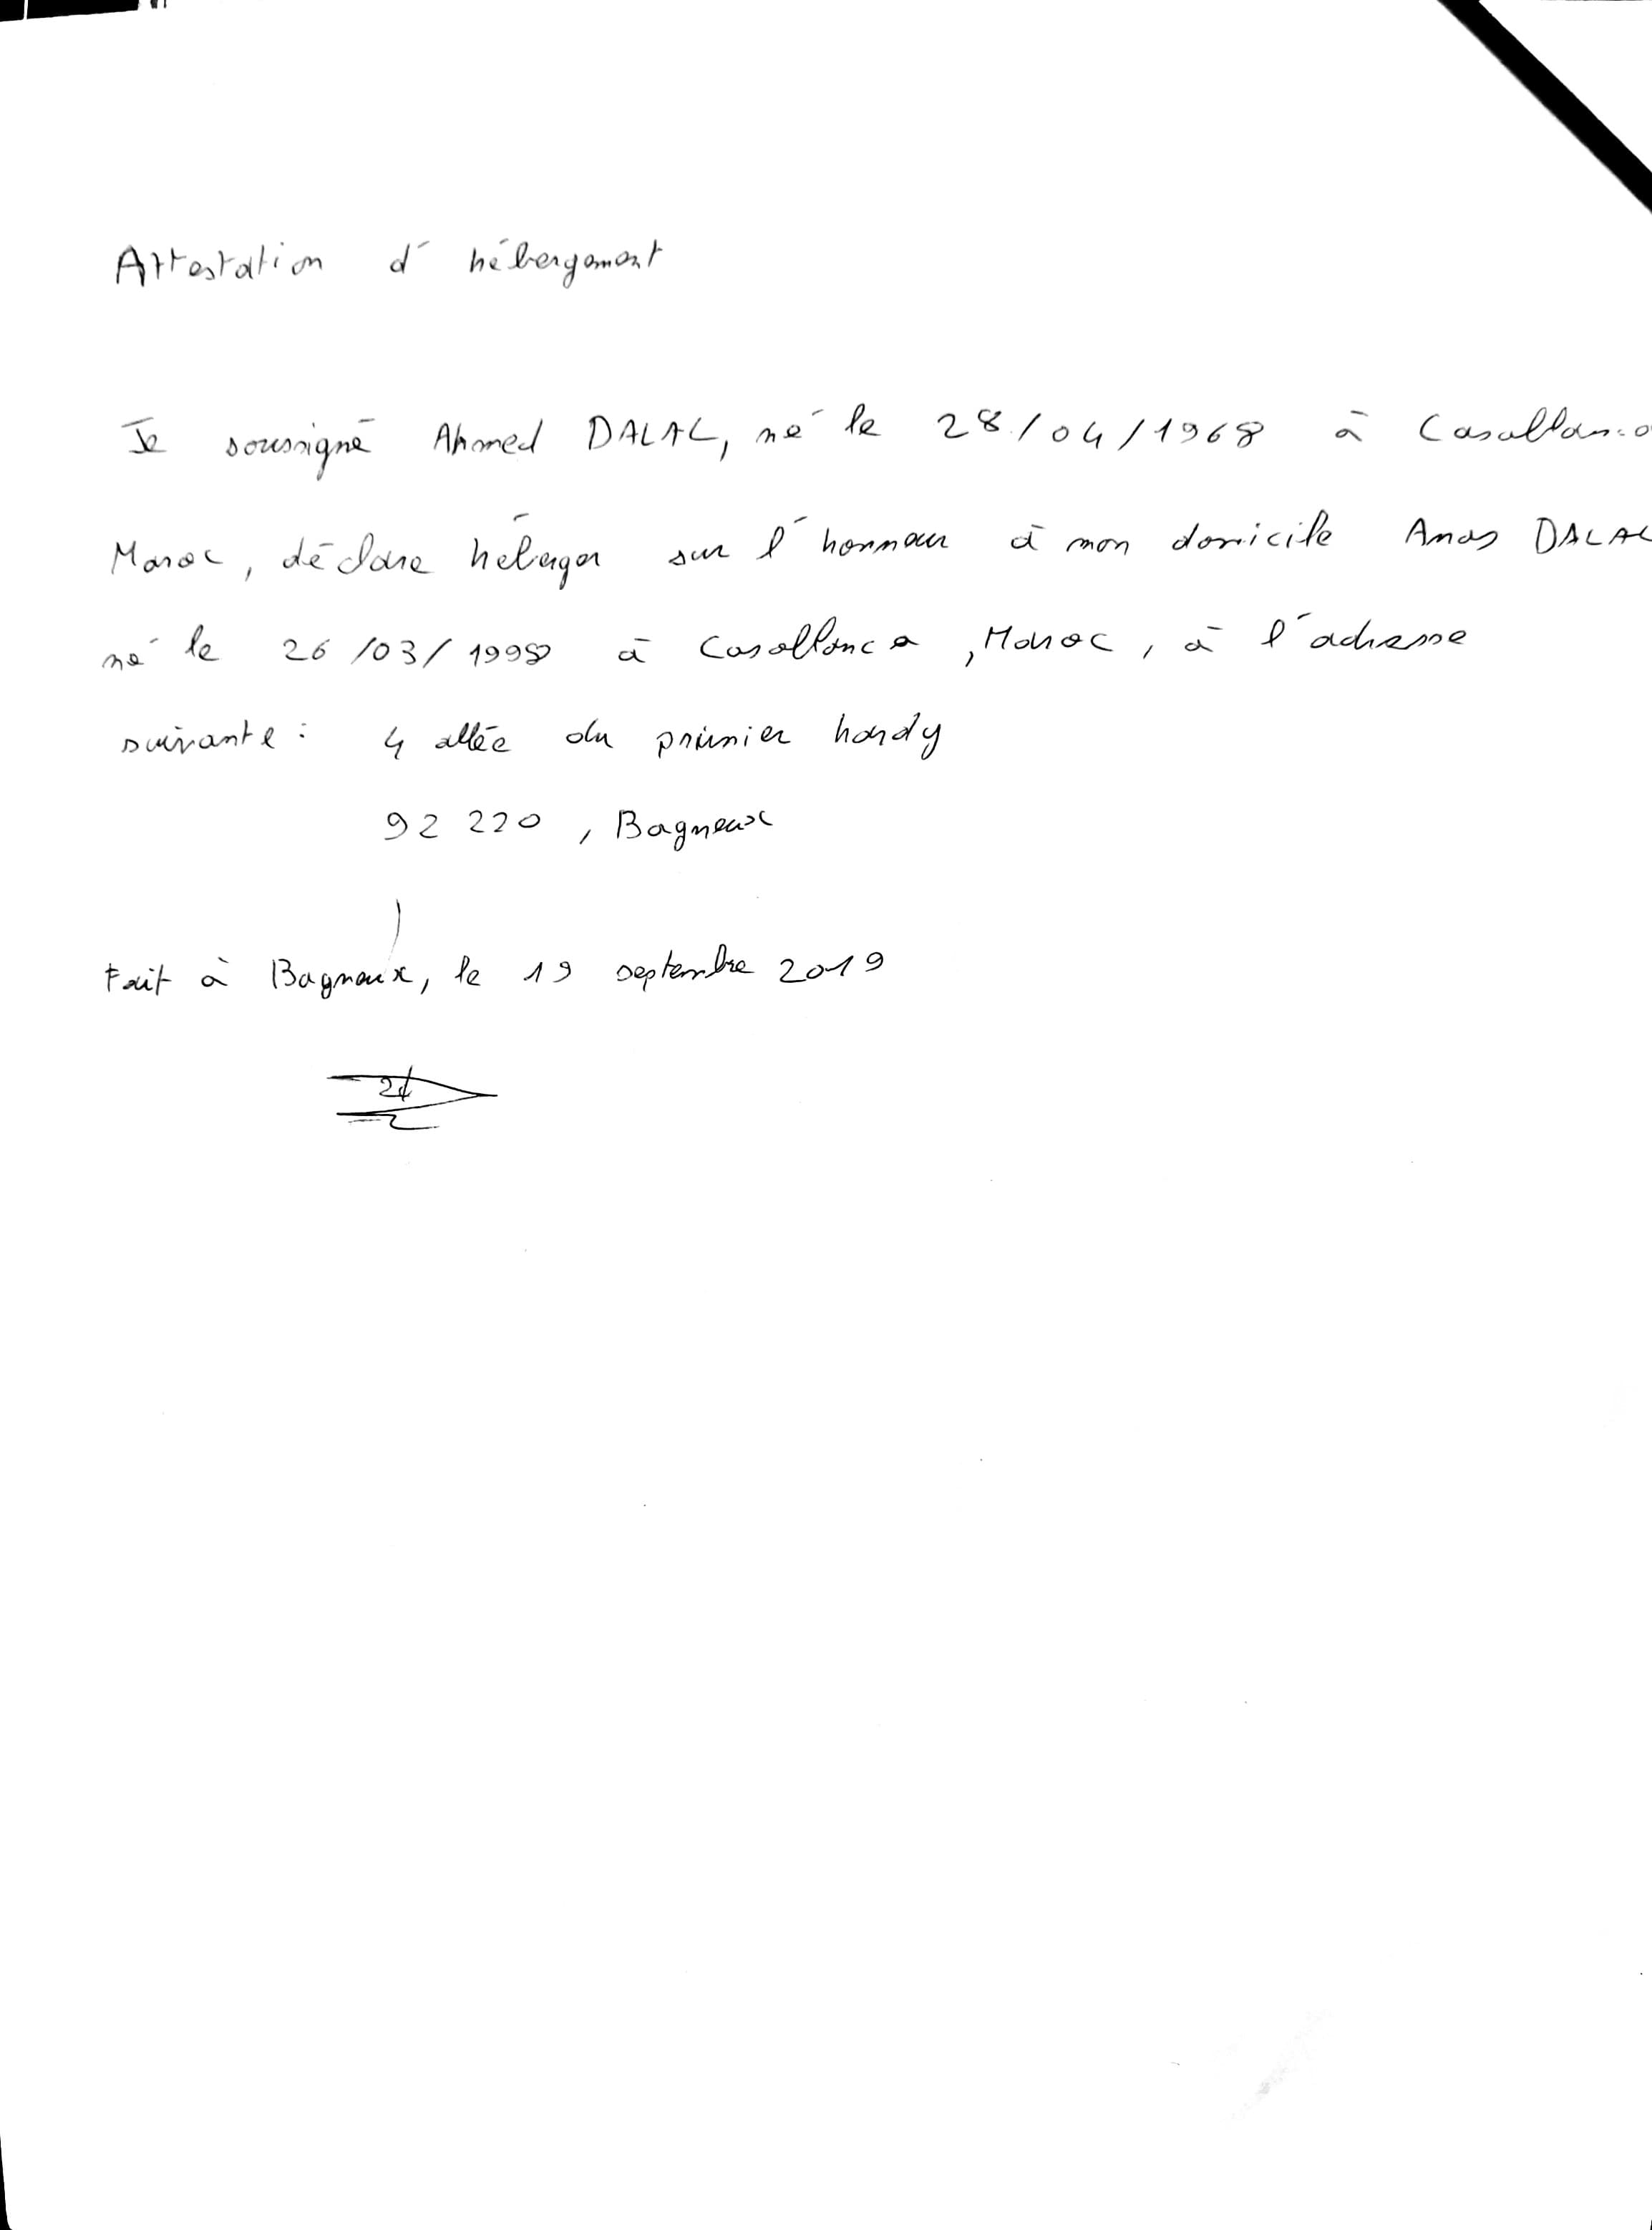 Attestation d'hébergement
Je soussigné Ahmed DALAL, né le 28/04/1968 à Casablanca
Maroc, déclare héberger sur l'honneur à mon domicile Anas DALAL
né le 26/03/1998 à Casablanca, Maroc, à l'adresse
suivante : 4 allée du prunier hardy
92 220, Bagneux
Fait à Bagneux, le 19 septembre 2019